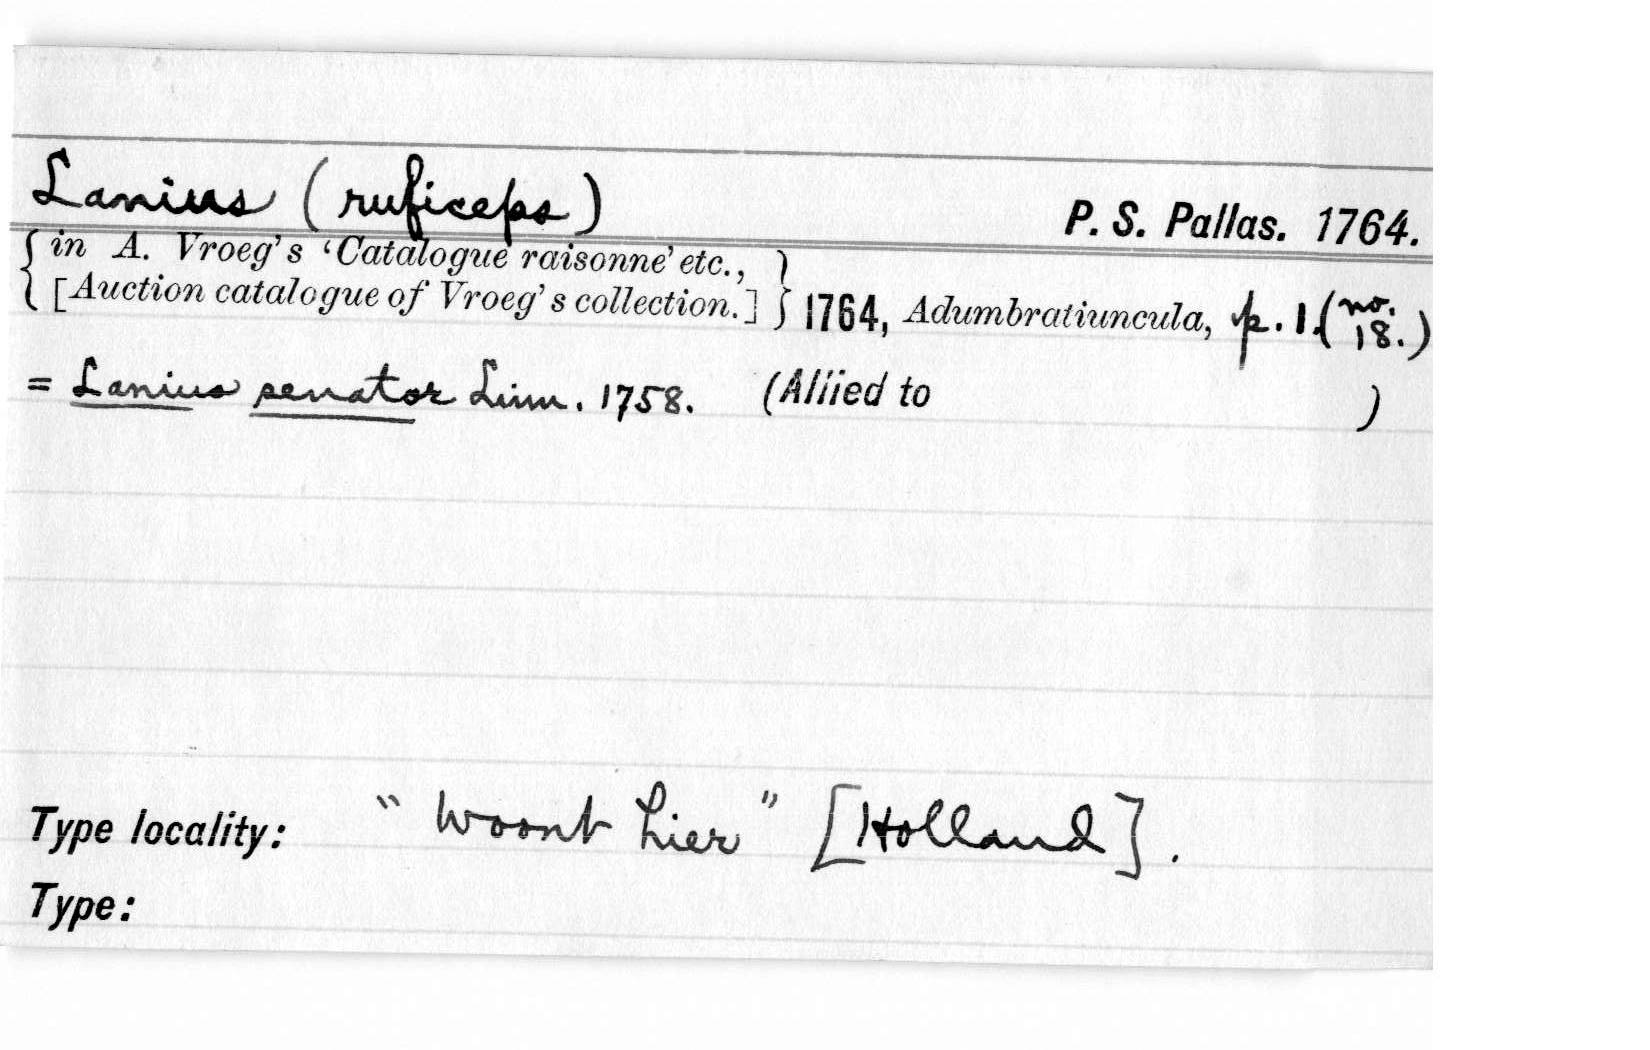 Lanius (ruficeps) P. S. Pallas. 1764.
{ in A. Vroeg's 'Catalogue raisonne' etc., }
{ [Auction catalogue of Vroeg's collection.] } 1764, Adumbratiuncula, p. 1. (no. 18.)
= Lanius senator Linn. 1758. (Allied to )
Type locality: "Woont hier" [Holland].
Type: